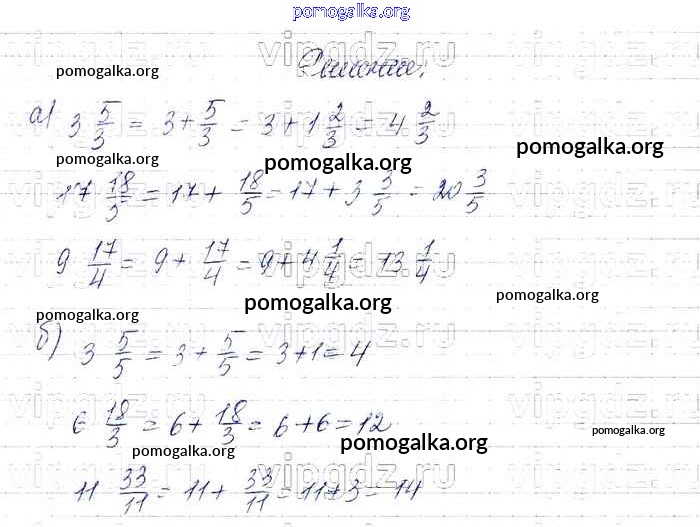 pomogalka.org
vipgdz.ru vipgdz.ru
Решение.
pomogalka.org
а) 3 5/3 = 3 + 5/3 = 3 + 1 2/3 = 4 2/3
pomogalka.org
pomogalka.org
pomogalka.org
vipgdz.ru vipgdz.ru
17 18/5 = 17 + 18/5 = 17 + 3 3/5 = 20 3/5
vipgdz.ru vipgdz.ru
9 17/4 = 9 + 17/4 = 9 + 4 1/4 = 13 1/4
pomogalka.org
pomogalka.org
pomogalka.org
vipgdz.ru vipgdz.ru
б) 3 5/5 = 3 + 5/5 = 3 + 1 = 4
vipgdz.ru vipgdz.ru
6 18/3 = 6 + 18/3 = 6 + 6 = 12
pomogalka.org
pomogalka.org
pomogalka.org
vipgdz.ru vipgdz.ru
11 33/11 = 11 + 33/11 = 11 + 3 = 14